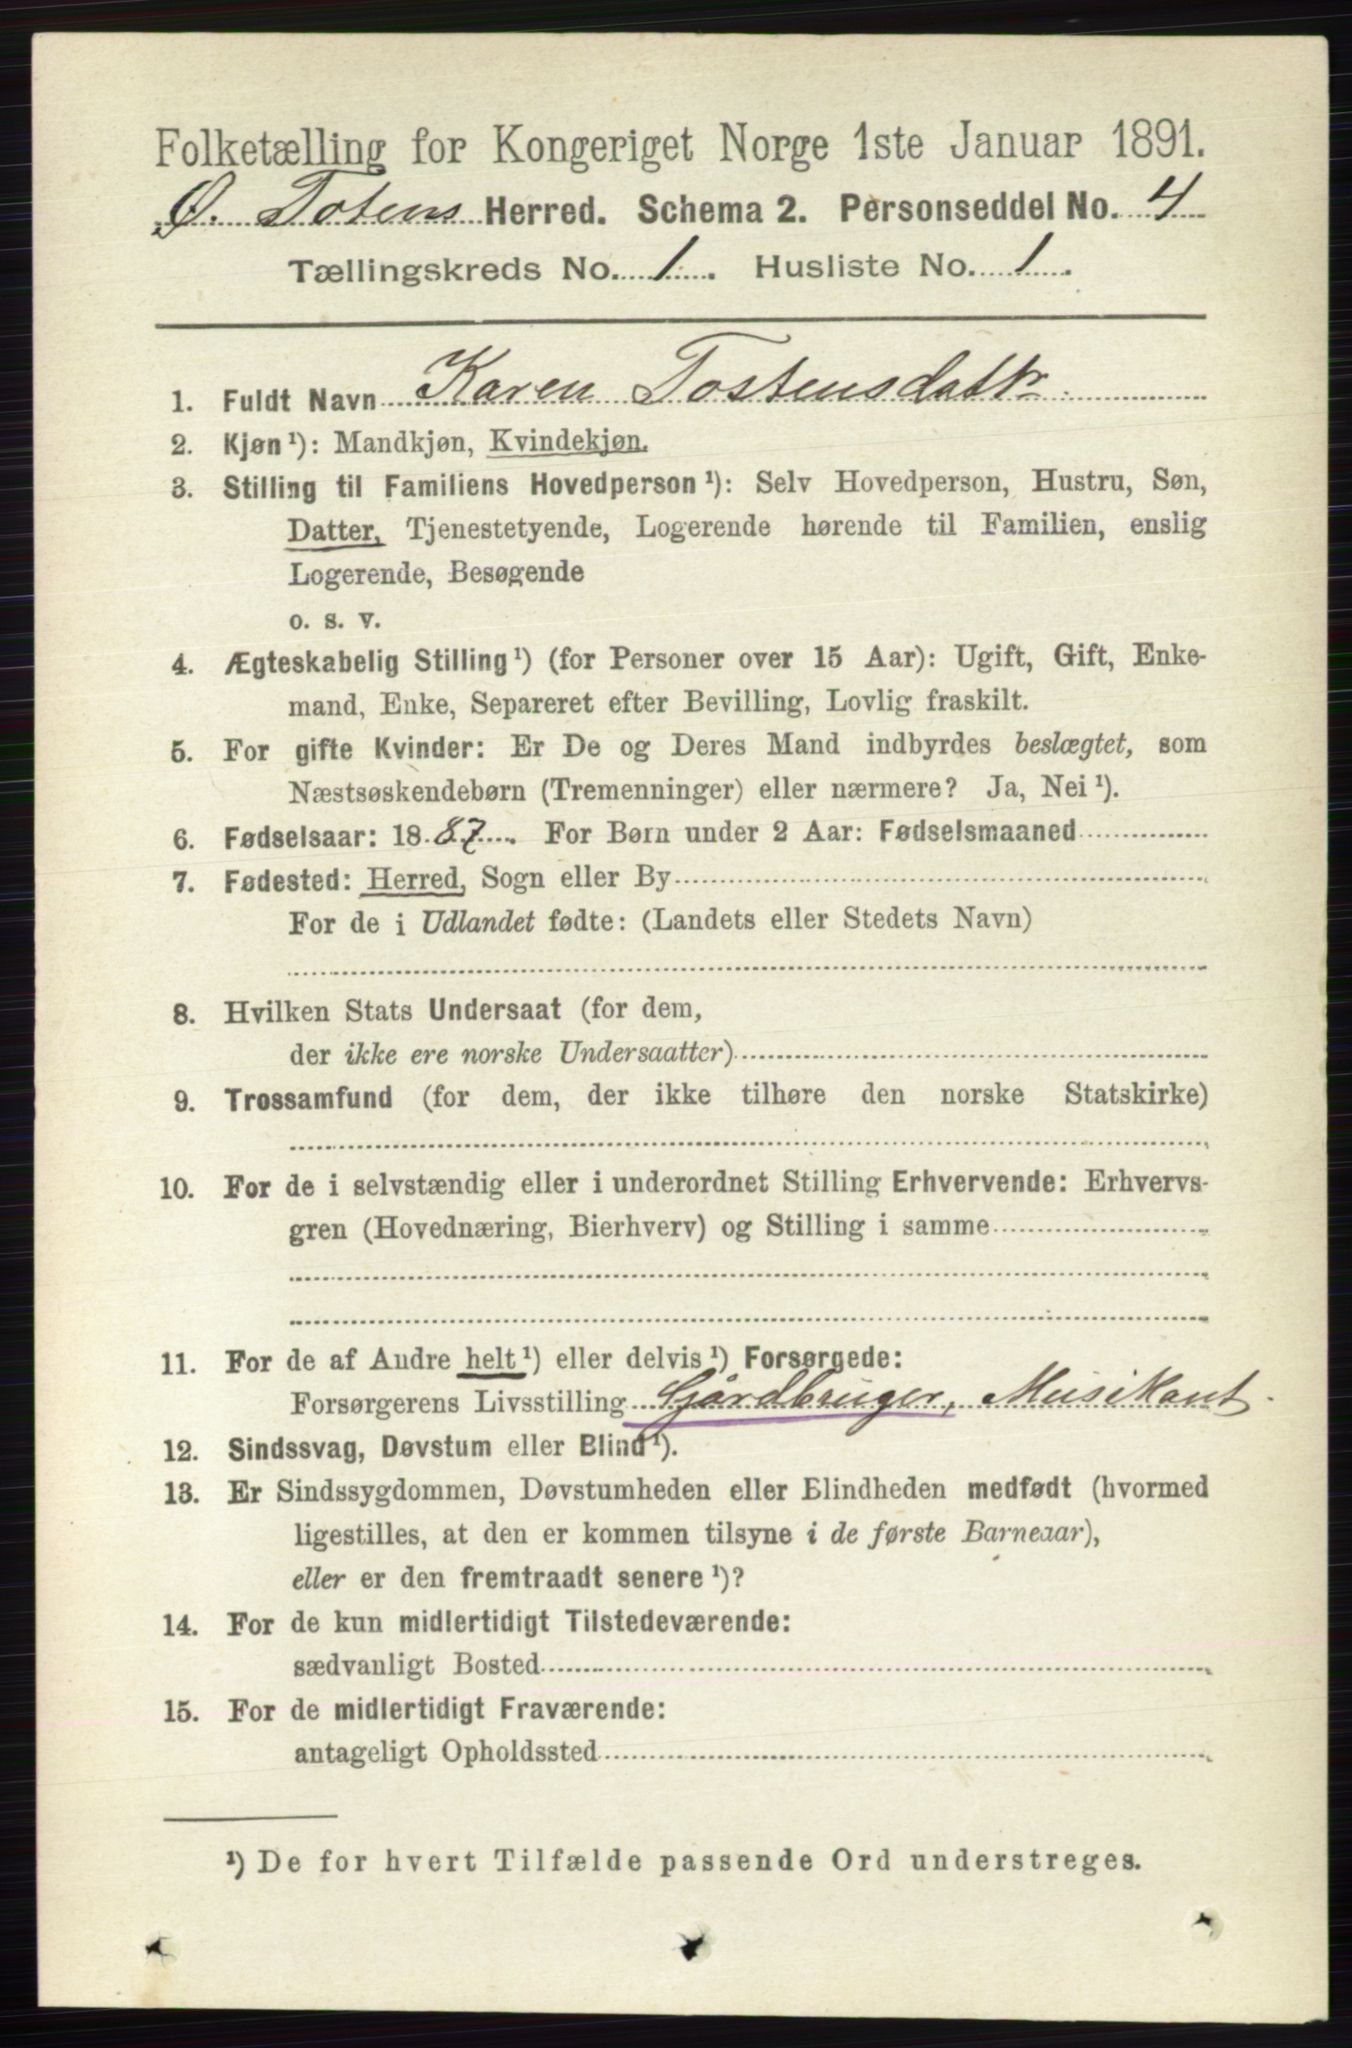 Folketælling for Kongeriget Norge 1ste Januar 1891.
Ø. Totens Herred. Schema 2. Personseddel No. 4
Tællingskreds No. 1. Husliste No. 1.
1. Fuldt Navn Karen Tostensdattr
2. Kjøn ¹): Mandkjøn, Kvindekjøn.
3. Stilling til Familiens Hovedperson ¹): Selv Hovedperson, Hustru, Søn,
Datter, Tjenestetyende, Logerende hørende til Familien, enslig
Logerende, Besøgende
o. s. v.
4. Ægteskabelig Stilling ¹) (for Personer over 15 Aar): Ugift, Gift, Enke-
mand, Enke, Separeret efter Bevilling, Lovlig fraskilt.
5. For gifte Kvinder: Er De og Deres Mand indbyrdes beslægtet, som
Næstsøskendebørn (Tremenninger) eller nærmere? Ja, Nei ¹).
6. Fødselsaar: 1887. For Børn under 2 Aar: Fødselsmaaned
7. Fødested: Herred, Sogn eller By
For de i Udlandet fødte: (Landets eller Stedets Navn)
8. Hvilken Stats Undersaat (for dem,
der ikke ere norske Undersaatter)
9. Trossamfund (for dem, der ikke tilhøre den norske Statskirke)
10. For de i selvstændig eller i underordnet Stilling Erhvervende: Erhvervs-
gren (Hovednæring, Bierhverv) og Stilling i samme
11. For de af Andre helt ¹) eller delvis ¹) Forsørgede:
Forsørgerens Livsstilling Gårdbruger, Musikant.
12. Sindssvag, Døvstum eller Blind ¹).
13. Er Sindssygdommen, Døvstumheden eller Blindheden medfødt (hvormed
ligestilles, at den er kommen tilsyne i de første Barneaar),
eller er den fremtraadt senere ¹)?
14. For de kun midlertidigt Tilstedeværende:
sædvanligt Bosted
15. For de midlertidigt Fraværende:
antageligt Opholdssted
¹) De for hvert Tilfælde passende Ord understreges.